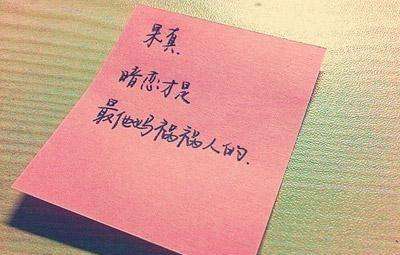 果真.
暗恋才是
最他妈祸祸人的.